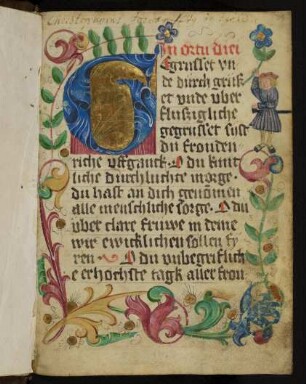 In ortu diei
Gegrusset vn
de durch gruß
et vnde vber
flussigliche
gegrusset sist
du frouden
riche vffganck. O du kunt
liche durchluchte morge.
du hast an dich genomen
alle menschliche sorge. O du
vber clare fruwe in deine
wir ewicklichen sollen fy
ren. O du vnbegriflich
e erhochste tagk aller frou